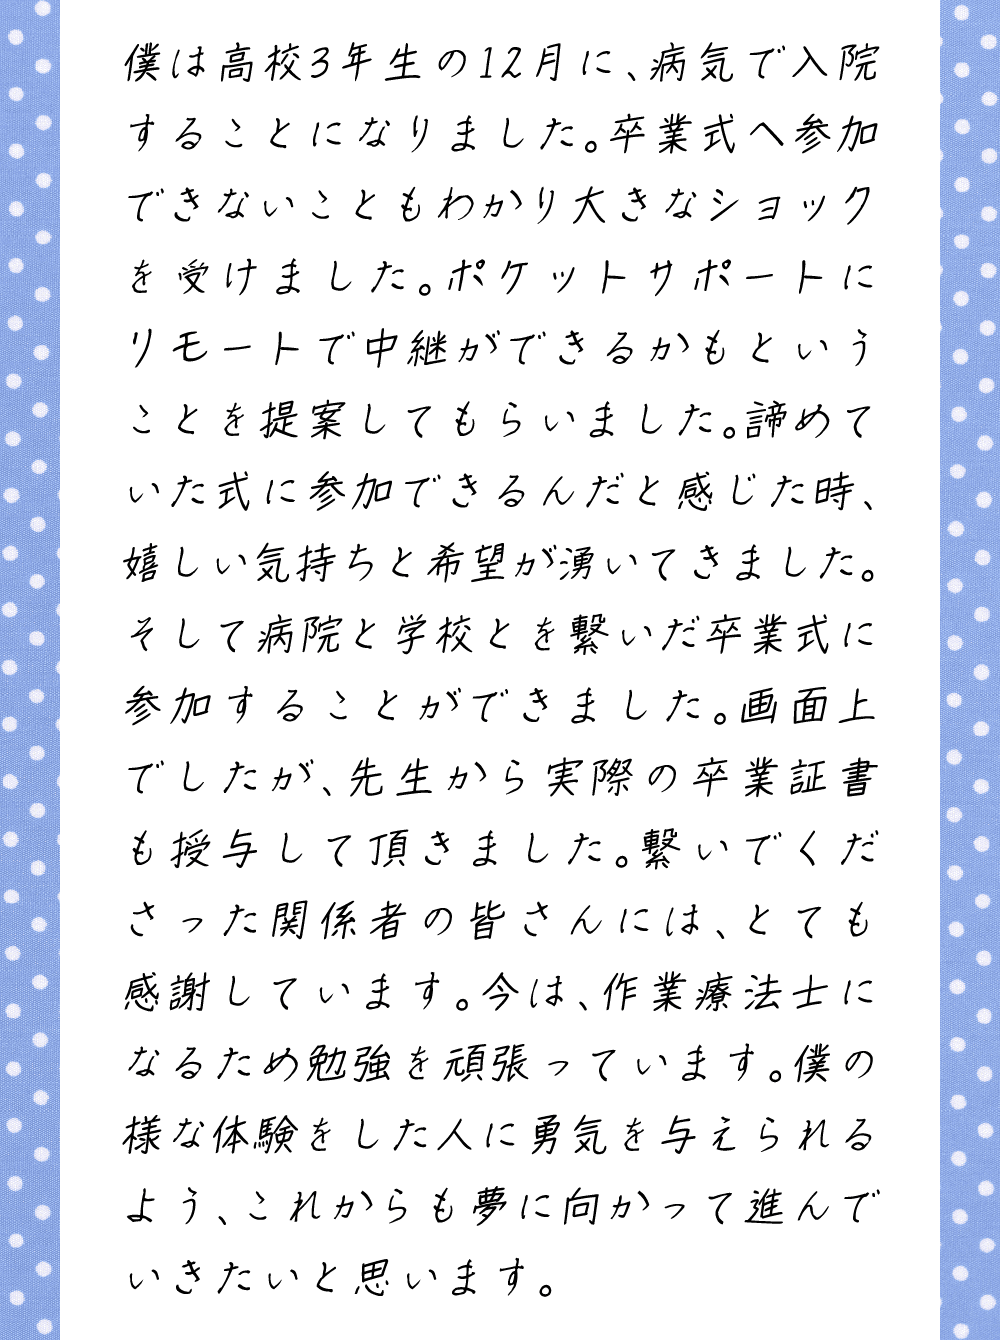 僕は高校3年生の12月に、病気で入院
することになりました。卒業式へ参加
できないこともわかり大きなショック
を受けました。ポケットサポートに
リモートで中継ができるかもという
ことを提案してもらいました。諦めて
いた式に参加できるんだと感じた時、
嬉しい気持ちと希望が湧いてきました。
そして病院と学校とを繋いだ卒業式に
参加することができました。画面上
でしたが、先生から実際の卒業証書
も授与して頂きました。繋いでくだ
さった関係者の皆さんには、とても
感謝しています。今は、作業療法士に
なるため勉強を頑張っています。僕の
様な体験をした人に勇気を与えられる
よう、これからも夢に向かって進んで
いきたいと思います。